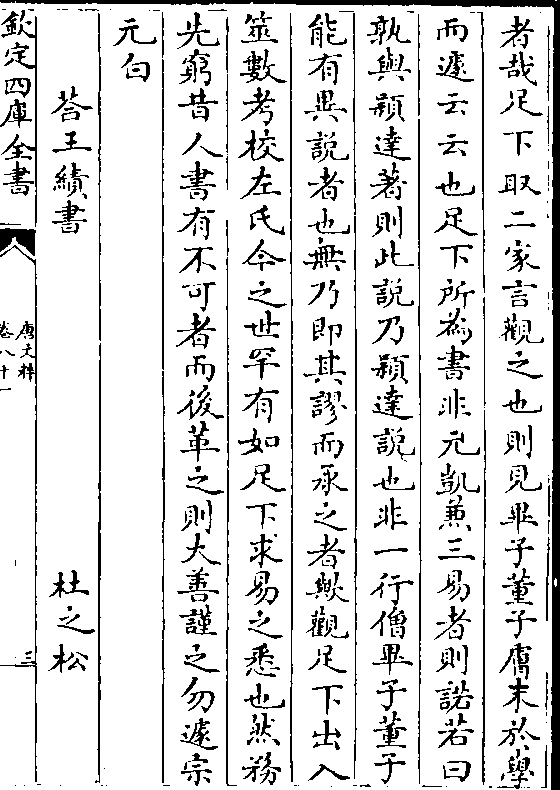 者哉足下取二家言觀之也則見畢子董子膚末於學
而遽云云也足下所為書非元凱兼三易者則諾若曰
孰與穎達著則此說乃穎達說也非一行僧畢子董子
能有異說者也無乃即其謬而承之者歟觀足下出入
筮數考校左氏今之世罕有如足下求易之悉也然務
先窮昔人書有不可者而後革之則大善謹之勿遽宗
元白
荅王績書 杜之松
欽定四庫全書
唐文粹
卷八十一
三